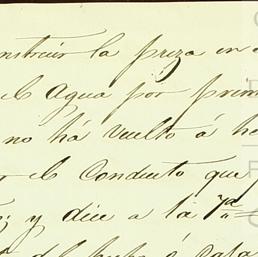 nstruir la preza en
el Agua por prim
no há vuelto á he
el Conducto que
y dice a la 7a